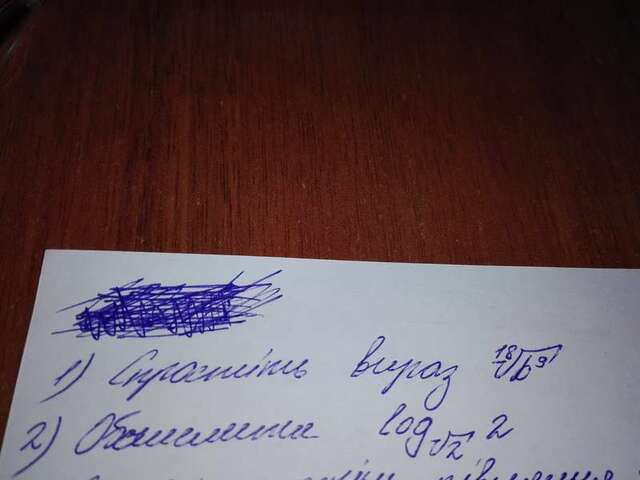 1) Спростіть вираз ¹⁸√b⁹
2) Обчислити log√2 2
рівняння